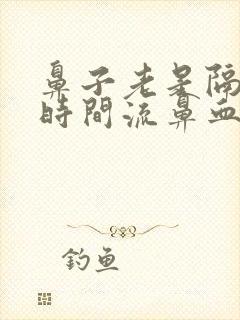 鼻子老是隔
時間流鼻血
釣魚